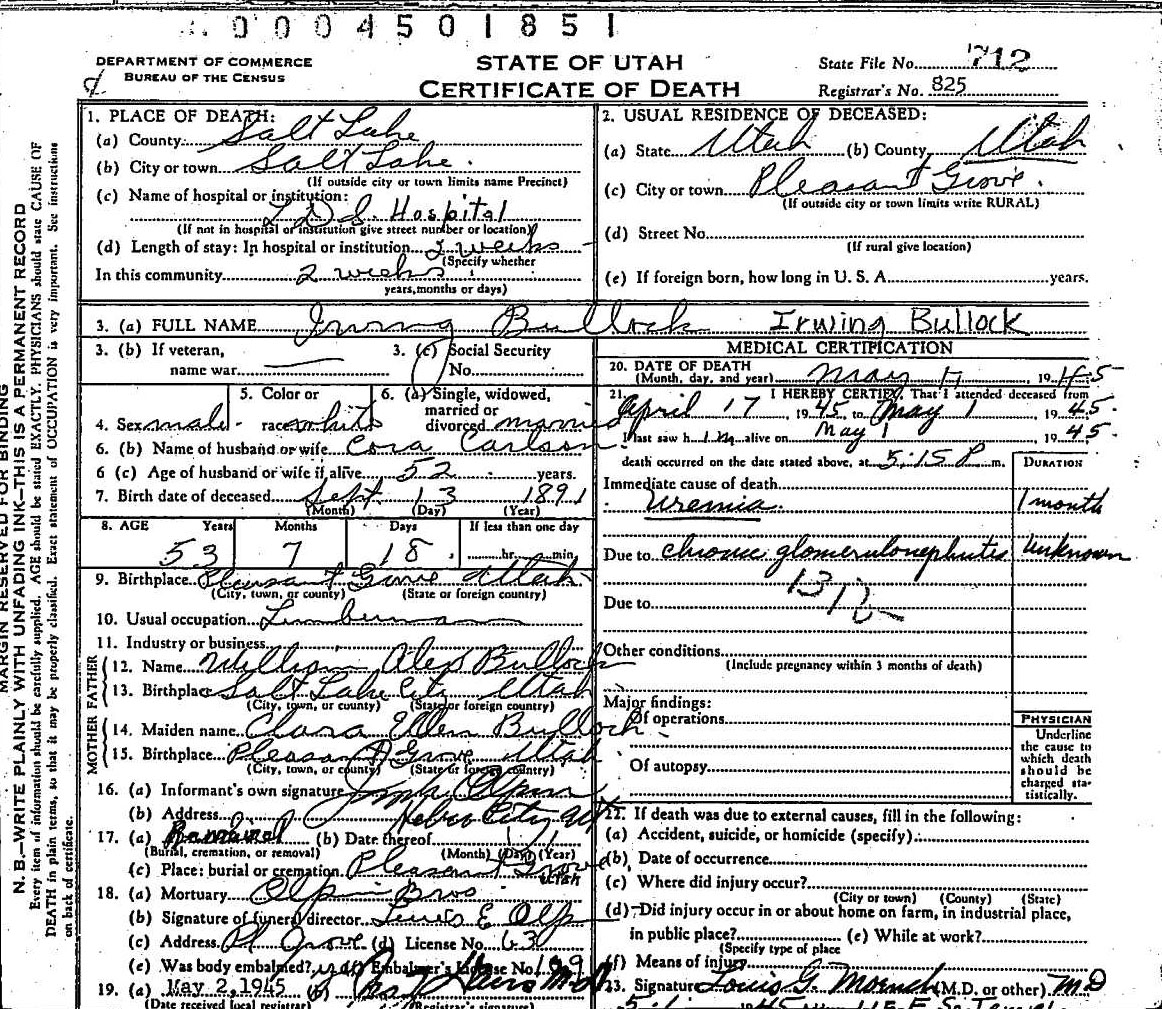 0004501851
DEPARTMENT OF COMMERCE
BUREAU OF THE CENSUS
STATE OF UTAH
CERTIFICATE OF DEATH
State File No. 712
Registrar's No. 825
MARGIN RESERVED FOR BINDING
N. B.—WRITE PLAINLY WITH UNFADING INK—THIS IS A PERMANENT RECORD
Every item of information should be carefully supplied. AGE should be stated EXACTLY. PHYSICIANS should state CAUSE OF
DEATH in plain terms, so that it may be properly classified. Exact statement of OCCUPATION is very important. See instructions
on back of certificate.
1. PLACE OF DEATH:
(a) County Salt Lake
(b) City or town Salt Lake.
(If outside city or town limits name Precinct)
(c) Name of hospital or institution:
L.D.S. Hospital
(If not in hospital or institution give street number or location)
(d) Length of stay: In hospital or institution 2 weeks
(Specify whether
In this community 2 weeks
years, months or days)
2. USUAL RESIDENCE OF DECEASED:
(a) State Utah (b) County Utah
(c) City or town Pleasant Grove.
(If outside city or town limits write RURAL)
(d) Street No.
(If rural give location)
(e) If foreign born, how long in U. S. A. years.
3. (a) FULL NAME Irwing Bullock Irwing Bullock
3. (b) If veteran,
name war
3. (c) Social Security
No.
4. Sex male
5. Color or
race white
6. (a) Single, widowed,
married or
divorced married
6. (b) Name of husband or wife Cora Carlson
6 (c) Age of husband or wife if alive 52 years.
7. Birth date of deceased Sept. 13 1891
(Month) (Day) (Year)
8. AGE Years Months Days If less than one day
53 7 18 hr. min.
9. Birthplace Pleasant Grove Utah
(City, town, or county) (State or foreign country)
10. Usual occupation Lumberman
11. Industry or business
FATHER
12. Name William Alex Bullock
13. Birthplace Salt Lake City Utah
(City, town, or county) (State or foreign country)
MOTHER
14. Maiden name Clara Ellen Bullock
15. Birthplace Pleasant Grove Utah
(City, town, or county) (State or foreign country)
16. (a) Informant's own signature
(b) Address Heber City Ut
17. (a) Removal (b) Date thereof
(Burial, cremation, or removal) (Month) (Day) (Year)
(c) Place: burial or cremation Pleasant Grove
Utah
18. (a) Mortuary Olpin Bros
(b) Signature of funeral director E Olpin
(c) Address Pl Grove (d) License No. 63
(e) Was body embalmed? yes (f) Embalmer's License No. 199
19. (a) May 2, 1945 (b) M.D.
(Date received local registrar) (Registrar's signature)
MEDICAL CERTIFICATION
20. DATE OF DEATH
(Month, day, and year) May 1, 1945
21. I HEREBY CERTIFY, That I attended deceased from
April 17, 1945, to May 1, 1945.
I last saw him alive on May 1, 1945
death occurred on the date stated above, at 5:15 P m.
DURATION
Immediate cause of death
Uremia. 1 month
Due to chronic glomerulonephritis Unknown
Due to
Other conditions
(Include pregnancy within 3 months of death)
Major findings:
Of operations
Of autopsy
PHYSICIAN
Underline
the cause to
which death
should be
charged sta-
tistically.
22. If death was due to external causes, fill in the following:
(a) Accident, suicide, or homicide (specify)
(b) Date of occurrence
(c) Where did injury occur?
(City or town) (County) (State)
(d) Did injury occur in or about home on farm, in industrial place,
in public place? (e) While at work?
(Specify type of place
(f) Means of injury
23. Signature Louis G. Moench (M.D. or other) M.D